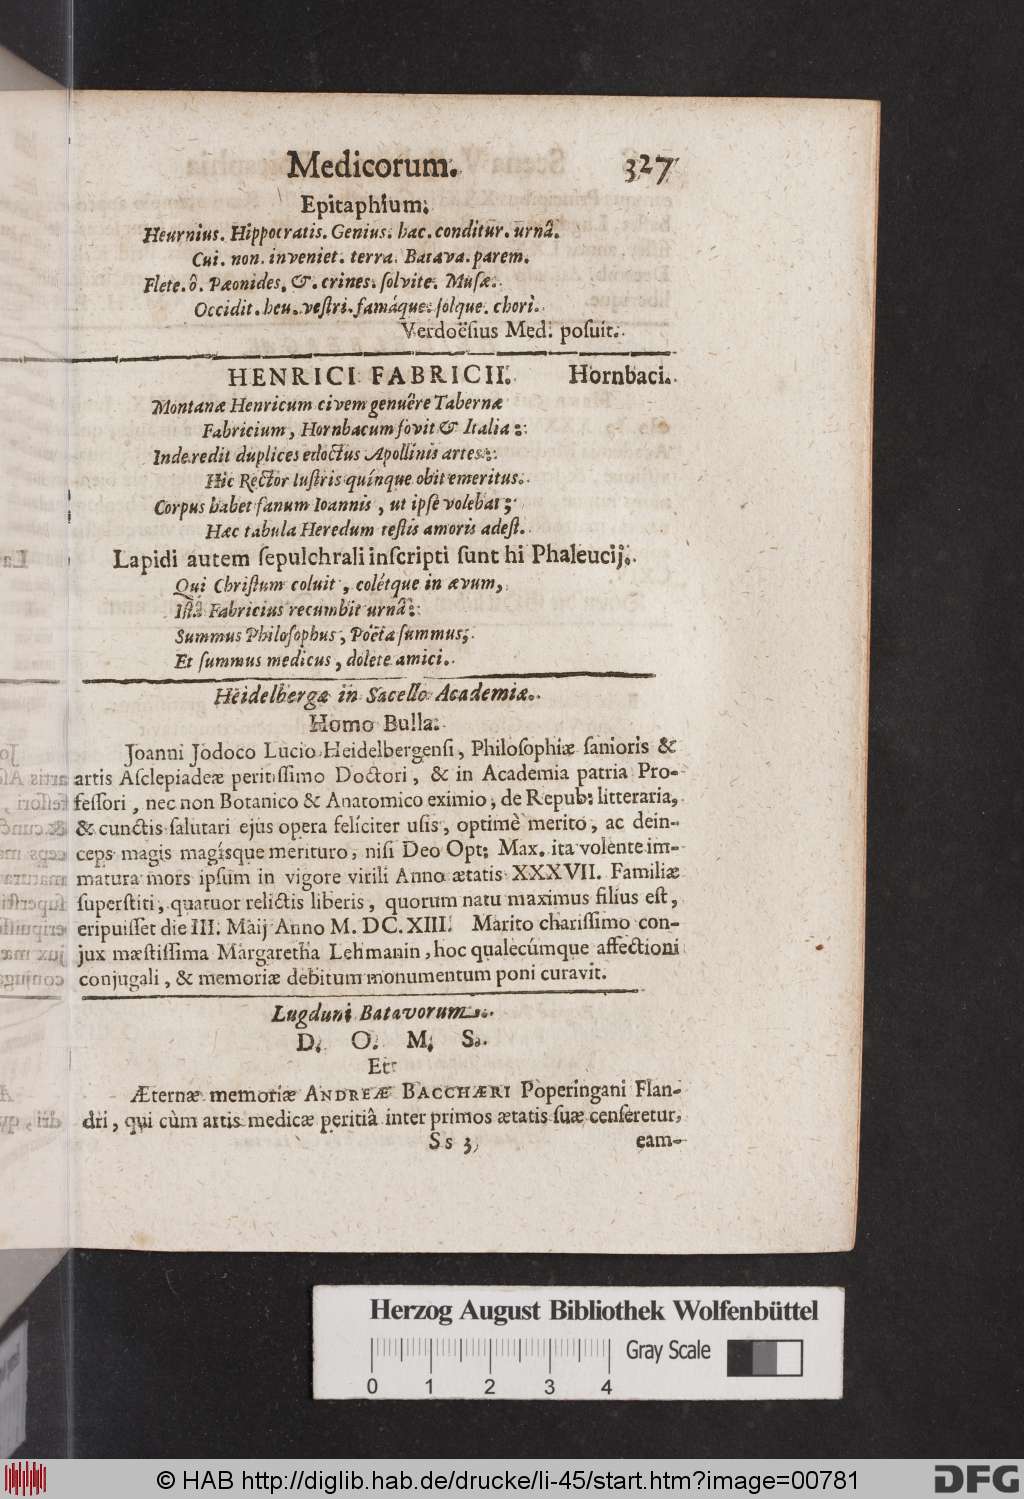 Medicorum. 327
Epitaphium.
Heurnius. Hippocratis. Genius. hac. conditur. urnâ.
Cui. non. inveniet. terra. Batava. parem.
Flete. ô. Pæonides. &. crines. solvite. Musæ.
Occidit. heu. vestri. famáque. solque. chori.
Verdoësius Med. posuit.
HENRICI FABRICII. Hornbaci.
Montanæ Henricum civem genuêre Tabernæ
Fabricium, Hornbacum fovit & Italia:
Inde redit duplices edoctus Apollinis artes:
Hic Rector lustris quínque obit emeritus.
Corpus habet fanum Ioannis, ut ipse volebat;
Hæc tabula Heredum testis amoris adest.
Lapidi autem sepulchrali inscripti sunt hi Phaleucij.
Qui Christum coluit, colétque in ævum,
Istâ Fabricius recumbit urnâ:
Summus Philosophus, Poëta summus;
Et summus medicus, dolete amici.
Heidelbergæ in Sacello Academiæ.
Homo Bulla.
Joanni Jodoco Lucio Heidelbergensi, Philosophiæ sanioris &
artis Asclepiadeæ peritissimo Doctori, & in Academia patria Pro-
fessori, nec non Botanico & Anatomico eximio, de Repub: litteraria,
& cunctis salutari ejus opera feliciter usis, optimè merito, ac dein-
ceps magis magísque merituro, nisi Deo Opt: Max. ita volente im-
matura mors ipsum in vigore virili Anno ætatis XXXVII. Familiæ
superstiti, quatuor relictis liberis, quorum natu maximus filius est,
eripuisset die III. Maij Anno M. DC. XIII. Marito charissimo con-
jux mæstissima Margaretha Lehmanin, hoc qualecúmque affectioni
conjugali, & memoriæ debitum monumentum poni curavit.
Lugduni Batavorum.
D. O. M. S.
Et
Æternæ memoriæ ANDREÆ BACCHÆRI Poperingani Flan-
dri, qui cùm artis medicæ peritiâ inter primos ætatis suæ censeretur,
Ss 3 eam-
Herzog August Bibliothek Wolfenbüttel
Gray Scale
0 1 2 3 4
© HAB http://diglib.hab.de/drucke/li-45/start.htm?image=00781
DFG